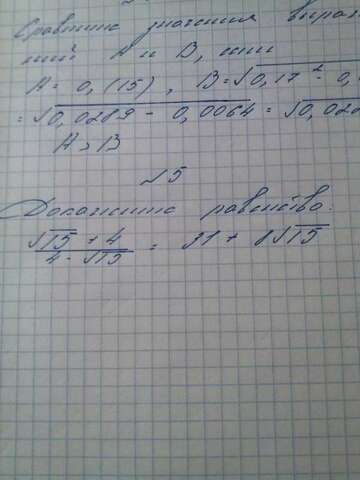 Сравните значения выраже
ний А и В, если
А = 0,(15), В = √0,17² - 0,
= √0,0289 - 0,0064 = √0,022
А > В
№5
Докажите равенство:
(√15 + 4)/(4 - √15) = 31 + 8√15